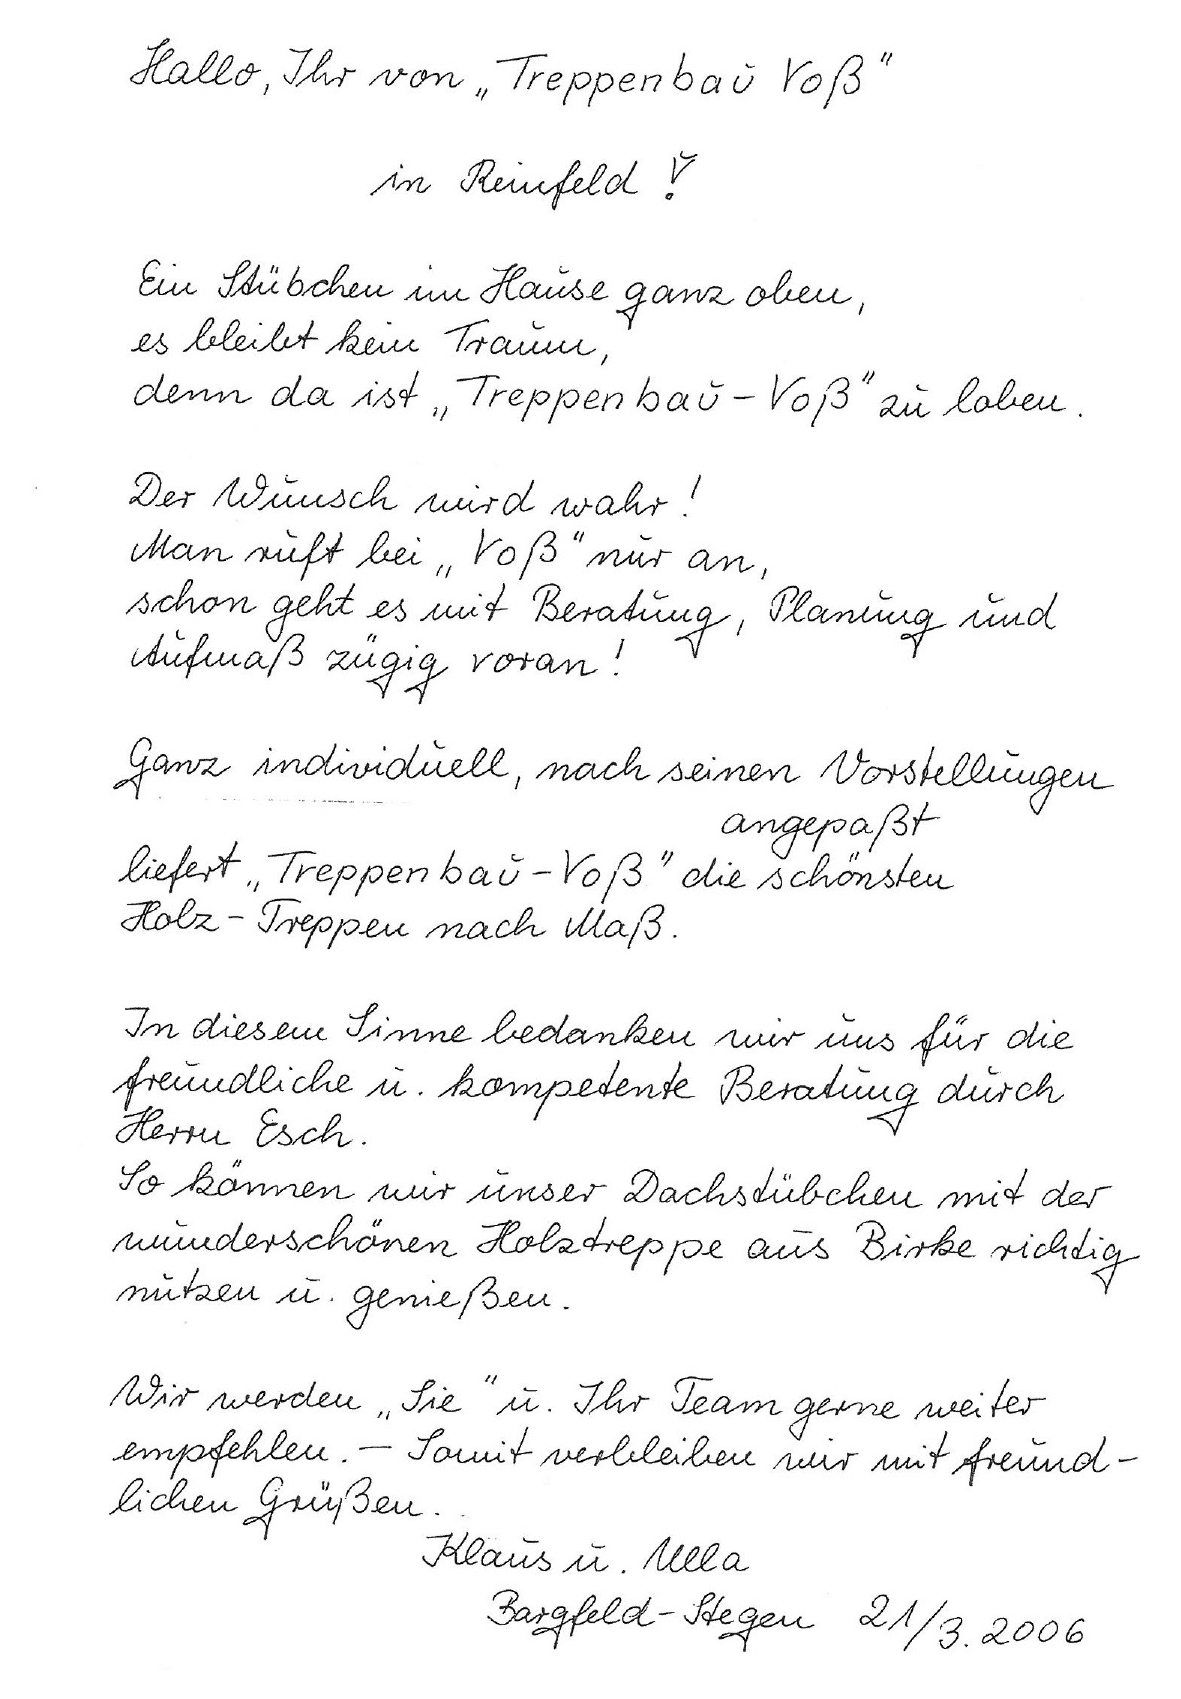 Hallo, Ihr von „Treppenbau Voß"
in Reinfeld !
Ein Stübchen im Hause ganz oben,
es bleibt kein Traum,
denn da ist „Treppenbau – Voß" zu loben.
Der Wunsch wird wahr!
Man ruft bei „Voß" nur an,
schon geht es mit Beratung, Planung und
Aufmaß zügig voran!
Ganz individuell, nach seinen Vorstellungen
angepaßt
liefert „Treppenbau – Voß" die schönsten
Holz – Treppen nach Maß.
In diesem Sinne bedanken wir uns für die
freundliche u. kompetente Beratung durch
Herrn Esch.
So können wir unser Dachstübchen mit der
wunderschönen Holztreppe aus Birke richtig
nutzen u. genießen.
Wir werden „Sie" u. Ihr Team gerne weiter
empfehlen. – Somit verbleiben wir mit freund-
lichen Grüßen.
Klaus u. Ulla
Bargfeld – Stegen 21/3. 2006